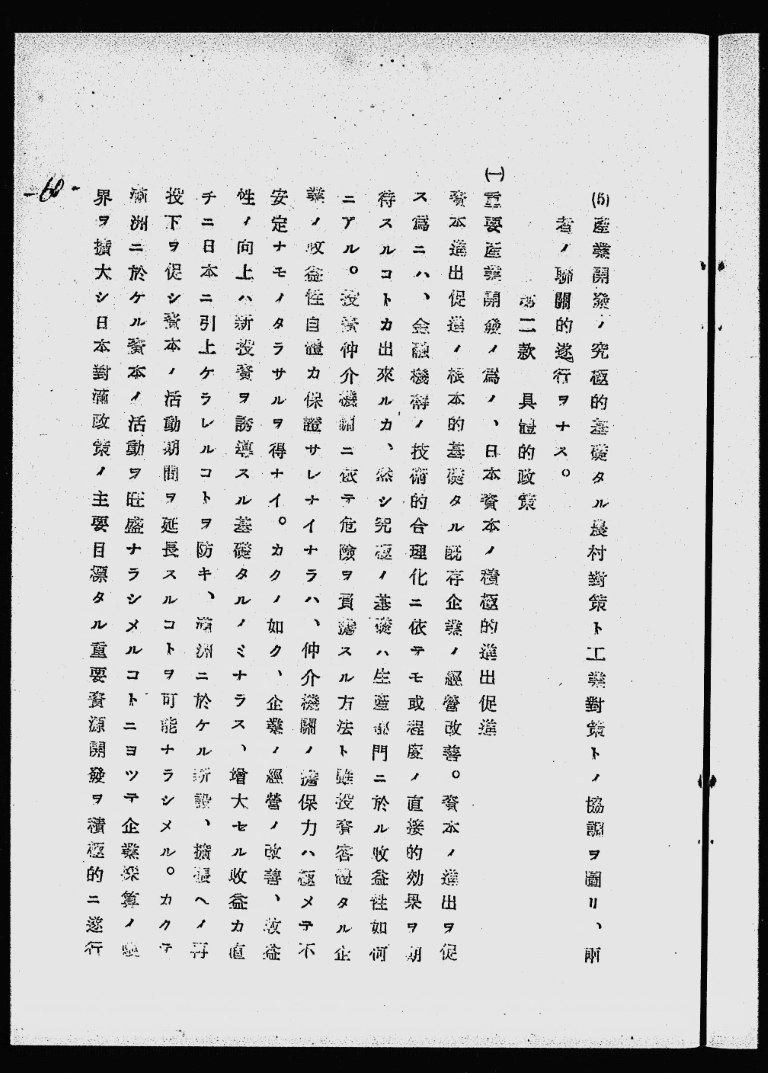 (5)産業開發ノ究極的基礎タル農村對策ト工業對策トノ協調ヲ圖リ、兩
者ノ聯關的遂行ヲナス。
第二款 具體的政策
(一)重要産業開發ノ爲ノ、日本資本ノ積極的進出促進
資本進出促進ノ根本的基礎タル既存企業ノ經營改善。資本ノ進出ヲ促
ス爲ニハ、金融機構ノ技術的合理化ニ依テモ或程度ノ直接的効果ヲ期
待スルコトカ出來ルカ、然シ究極ノ基礎ハ生産部門ニ於ル收益性如何
ニアル。投資仲介機關ニ依テ危險ヲ負擔スル方法ト雖投資客體タル企
業ノ收益性自體カ保證サレナイナラハ、仲介機關ノ擔保力ハ極メテ不
安定ナモノタラサルヲ得ナイ。カクノ如ク、企業ノ經營ノ改善、收益
性ノ向上ハ新投資ヲ誘導スル基礎タルノミナラス、增大セル收益カ直
チニ日本ニ引上ケラレルコトヲ防キ、滿洲ニ於ケル新設、擴張ヘノ再
投下ヲ促シ資本ノ活動期間ヲ延長スルコトヲ可能ナラシメル。カクテ
滿洲ニ於ケル資本ノ活動ヲ旺盛ナラシメルコトニヨツテ企業採算ノ
界ヲ擴大シ日本對滿政策ノ主要目標タル重要資源開發ヲ積極的ニ遂行
-60-